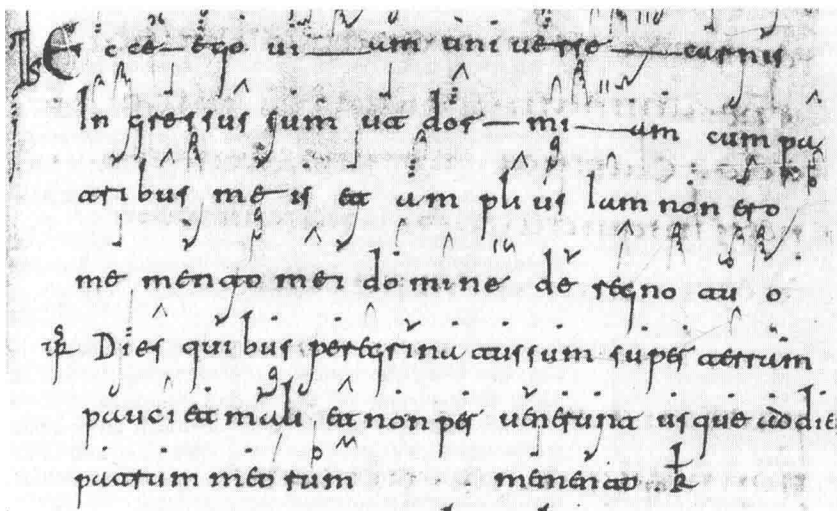 Ecce ego ui am uni uerse carnis
Ingressus sum ut dor mi am cum pa
tribus me is et am pli us Iam non ero
me mento mei domine de regno tu o
Dies quibus peregrinatus sum super terram
pauci et mali et non per uenerunt usque ad die
patrum meo rum memento R